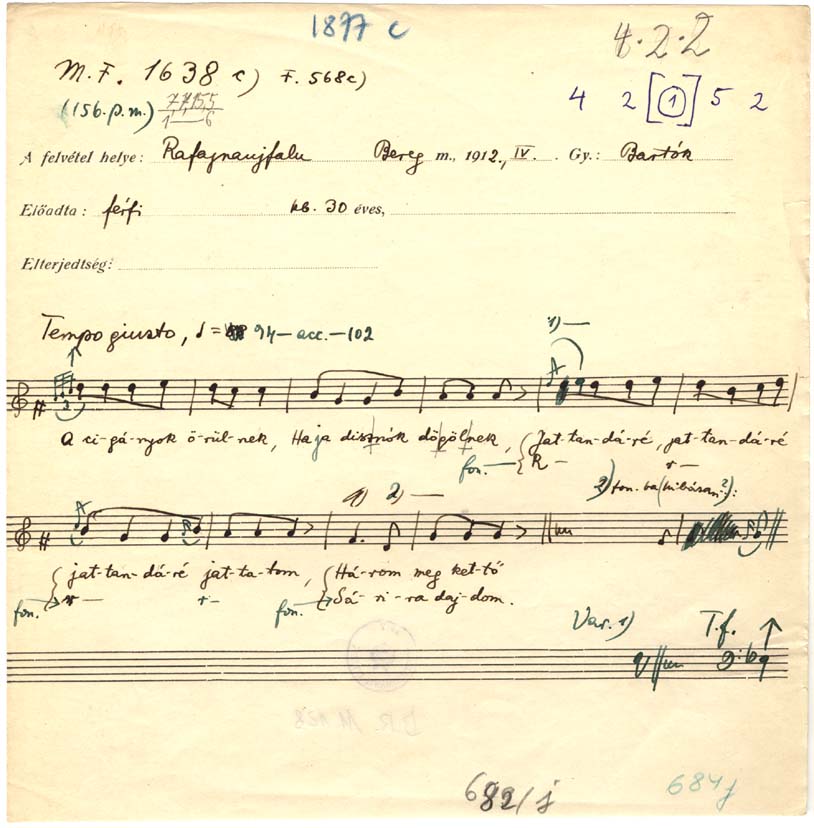 1877 c
4.2.2
M.F. 1638 c) F. 568c)
4 2 [1] 5 2
(156.p.m.) 7,7,15,5
1—6
A felvétel helye: Rafajnaujfalu Bereg m., 1912., IV. Gy.: Bartók
Előadta: férfi kb. 30 éves,
Elterjedtség:
Tempo giusto, 94 — acc. — 102
1) —
A ci-gá-nyok ö-rül-nek, Haja disznók dögölnek, Jat-tan-dá-ré, jat-tan-dá-ré
fon. — R —
r —
1) 2) — 2) fon. va (hibásan?):
jat-tan-dá-ré jat-ta-tom, Há-rom meg ket-tő
fon. r — r — fon. Sá-ri-ra daj-dom.
Var. 1) T.f.
D.R. 11128
682/j
684j